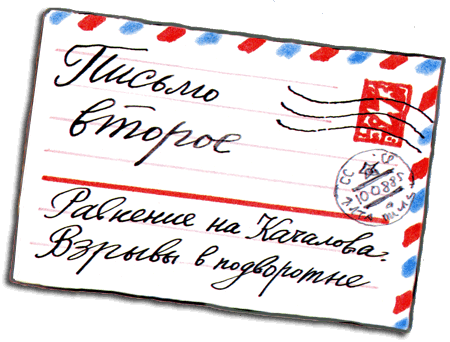 Письмо
второе
Равнение на Качалова.
Взрывы в подворотне